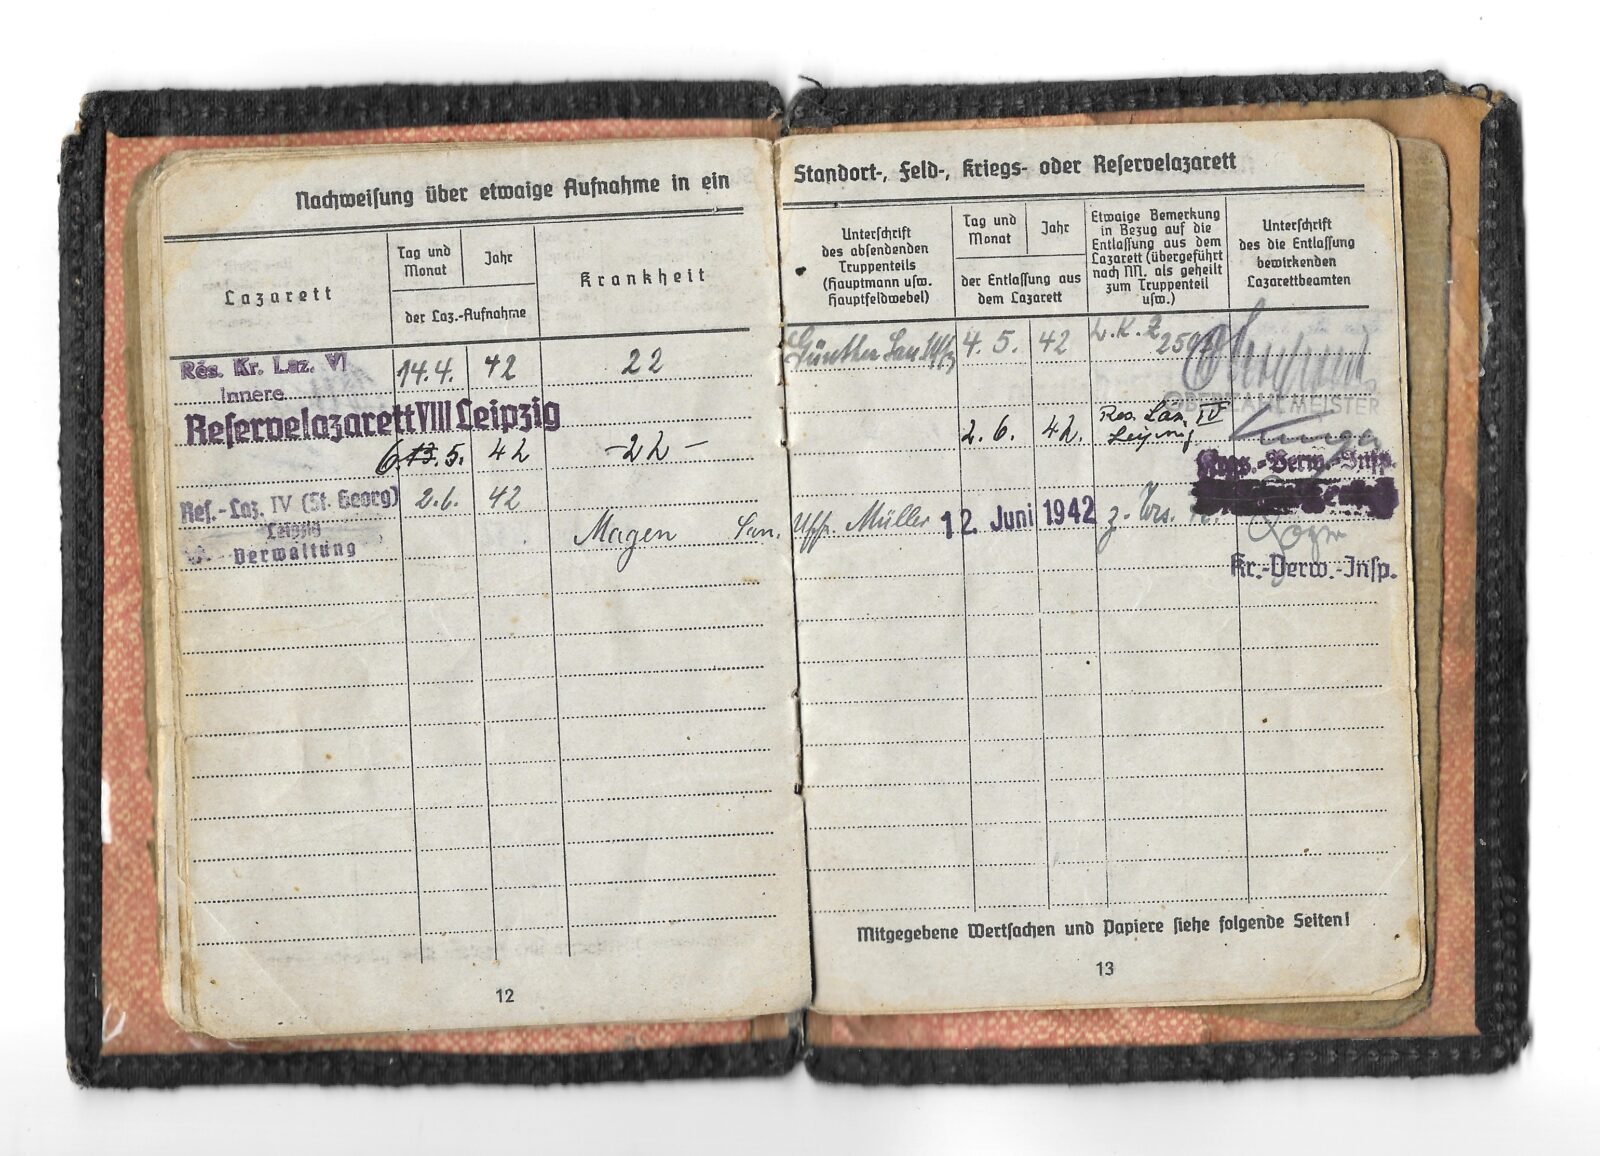 Nachweisung über etwaige Aufnahme in ein
Lazarett
Tag und Monat
Jahr
der Laz.-Aufnahme
Krankheit
Res. Kr. Laz. VI
Innere
14.4. 42 22
Reservelazarett VIII Leipzig
6. 13. 5. 42 -22-
Res.-Laz. IV (St. Georg) 2.6. 42
Leipzig
Verwaltung
Magen
12
Standort-, Feld-, Kriegs- oder Reservelazarett
Unterschrift
des absendenden
Truppenteils
(Hauptmann usw.
Hauptfeldwebel)
Tag und
Monat
Jahr
der Entlassung aus
dem Lazarett
Etwaige Bemerkung
in Bezug auf die
Entlassung aus dem
Lazarett (übergeführt
nach NN. als geheilt
zum Truppenteil
usw.)
Unterschrift
des die Entlassung
bewirkenden
Lazarettbeamten
Günther 4. 5. 42
OBERZAHLMEISTER
2. 6. 42. Res. Laz. IV
Leipzig
Krgs.-Verw.-Insp.
San. Uffz. Müller 12. Juni 1942
Kr.-Verw.-Insp.
Mitgegebene Wertsachen und Papiere siehe folgende Seiten!
13